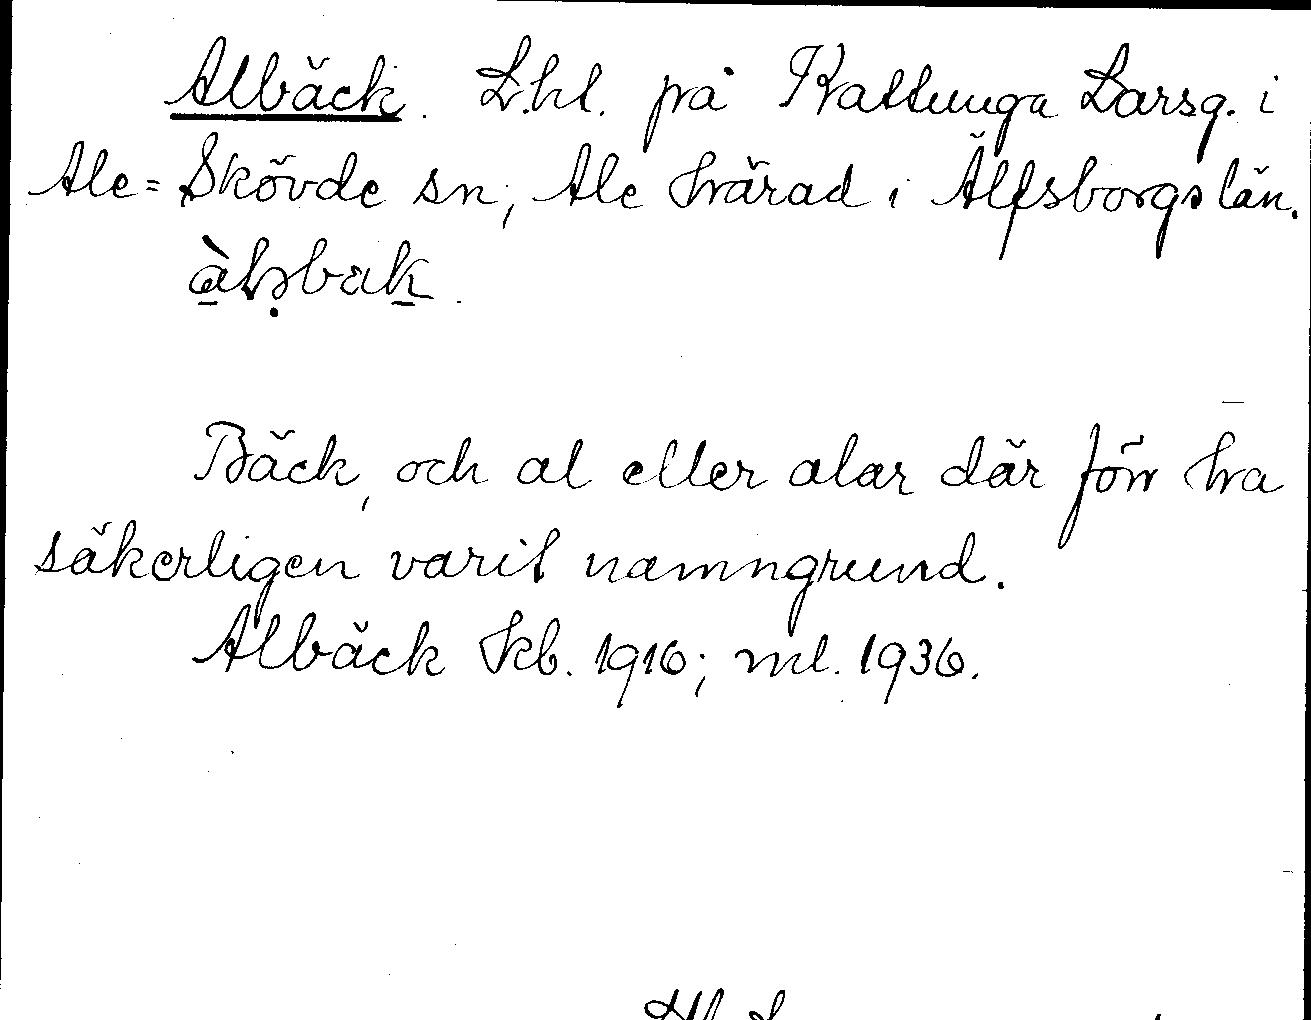 Albäck. L.hl. på Kattunga Larsg. i
Ale=Skövde sn, Ale härad i Älfsborgs län.
Bäck, och al eller alar där förr ha
säkerligen varit namngrund.
Albäck kb. 1916; ml. 1936.